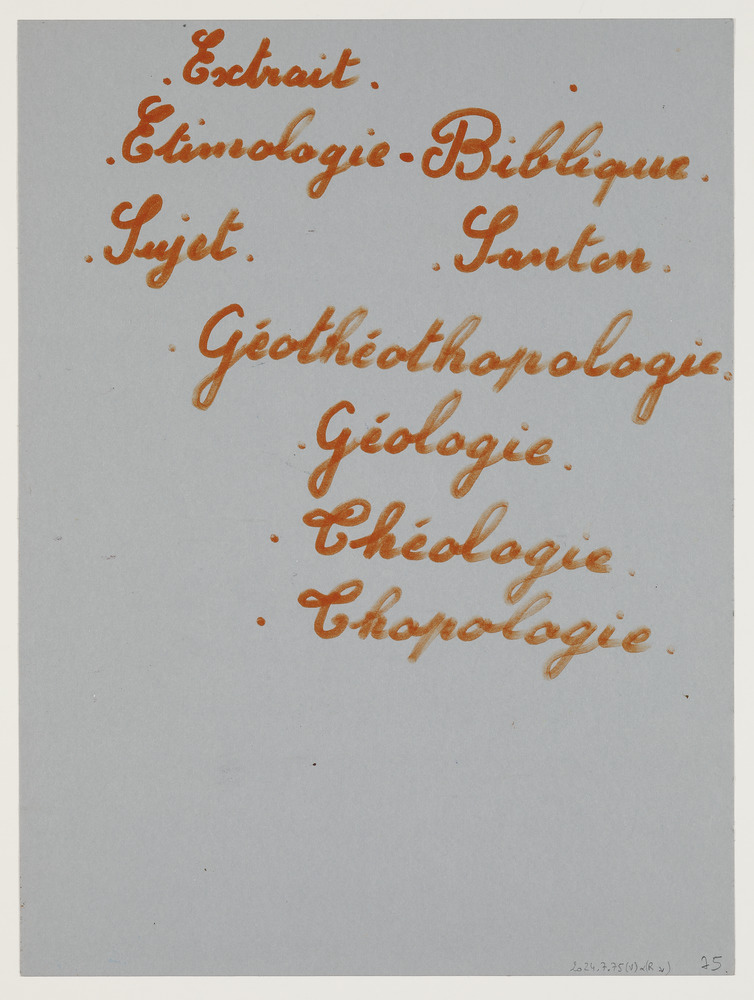 . Extrait .
. Etimologie - Biblique .
. Sujet . . Santon .
. Géothéothopologie .
. Géologie .
. Théologie .
. Thopologie .
75